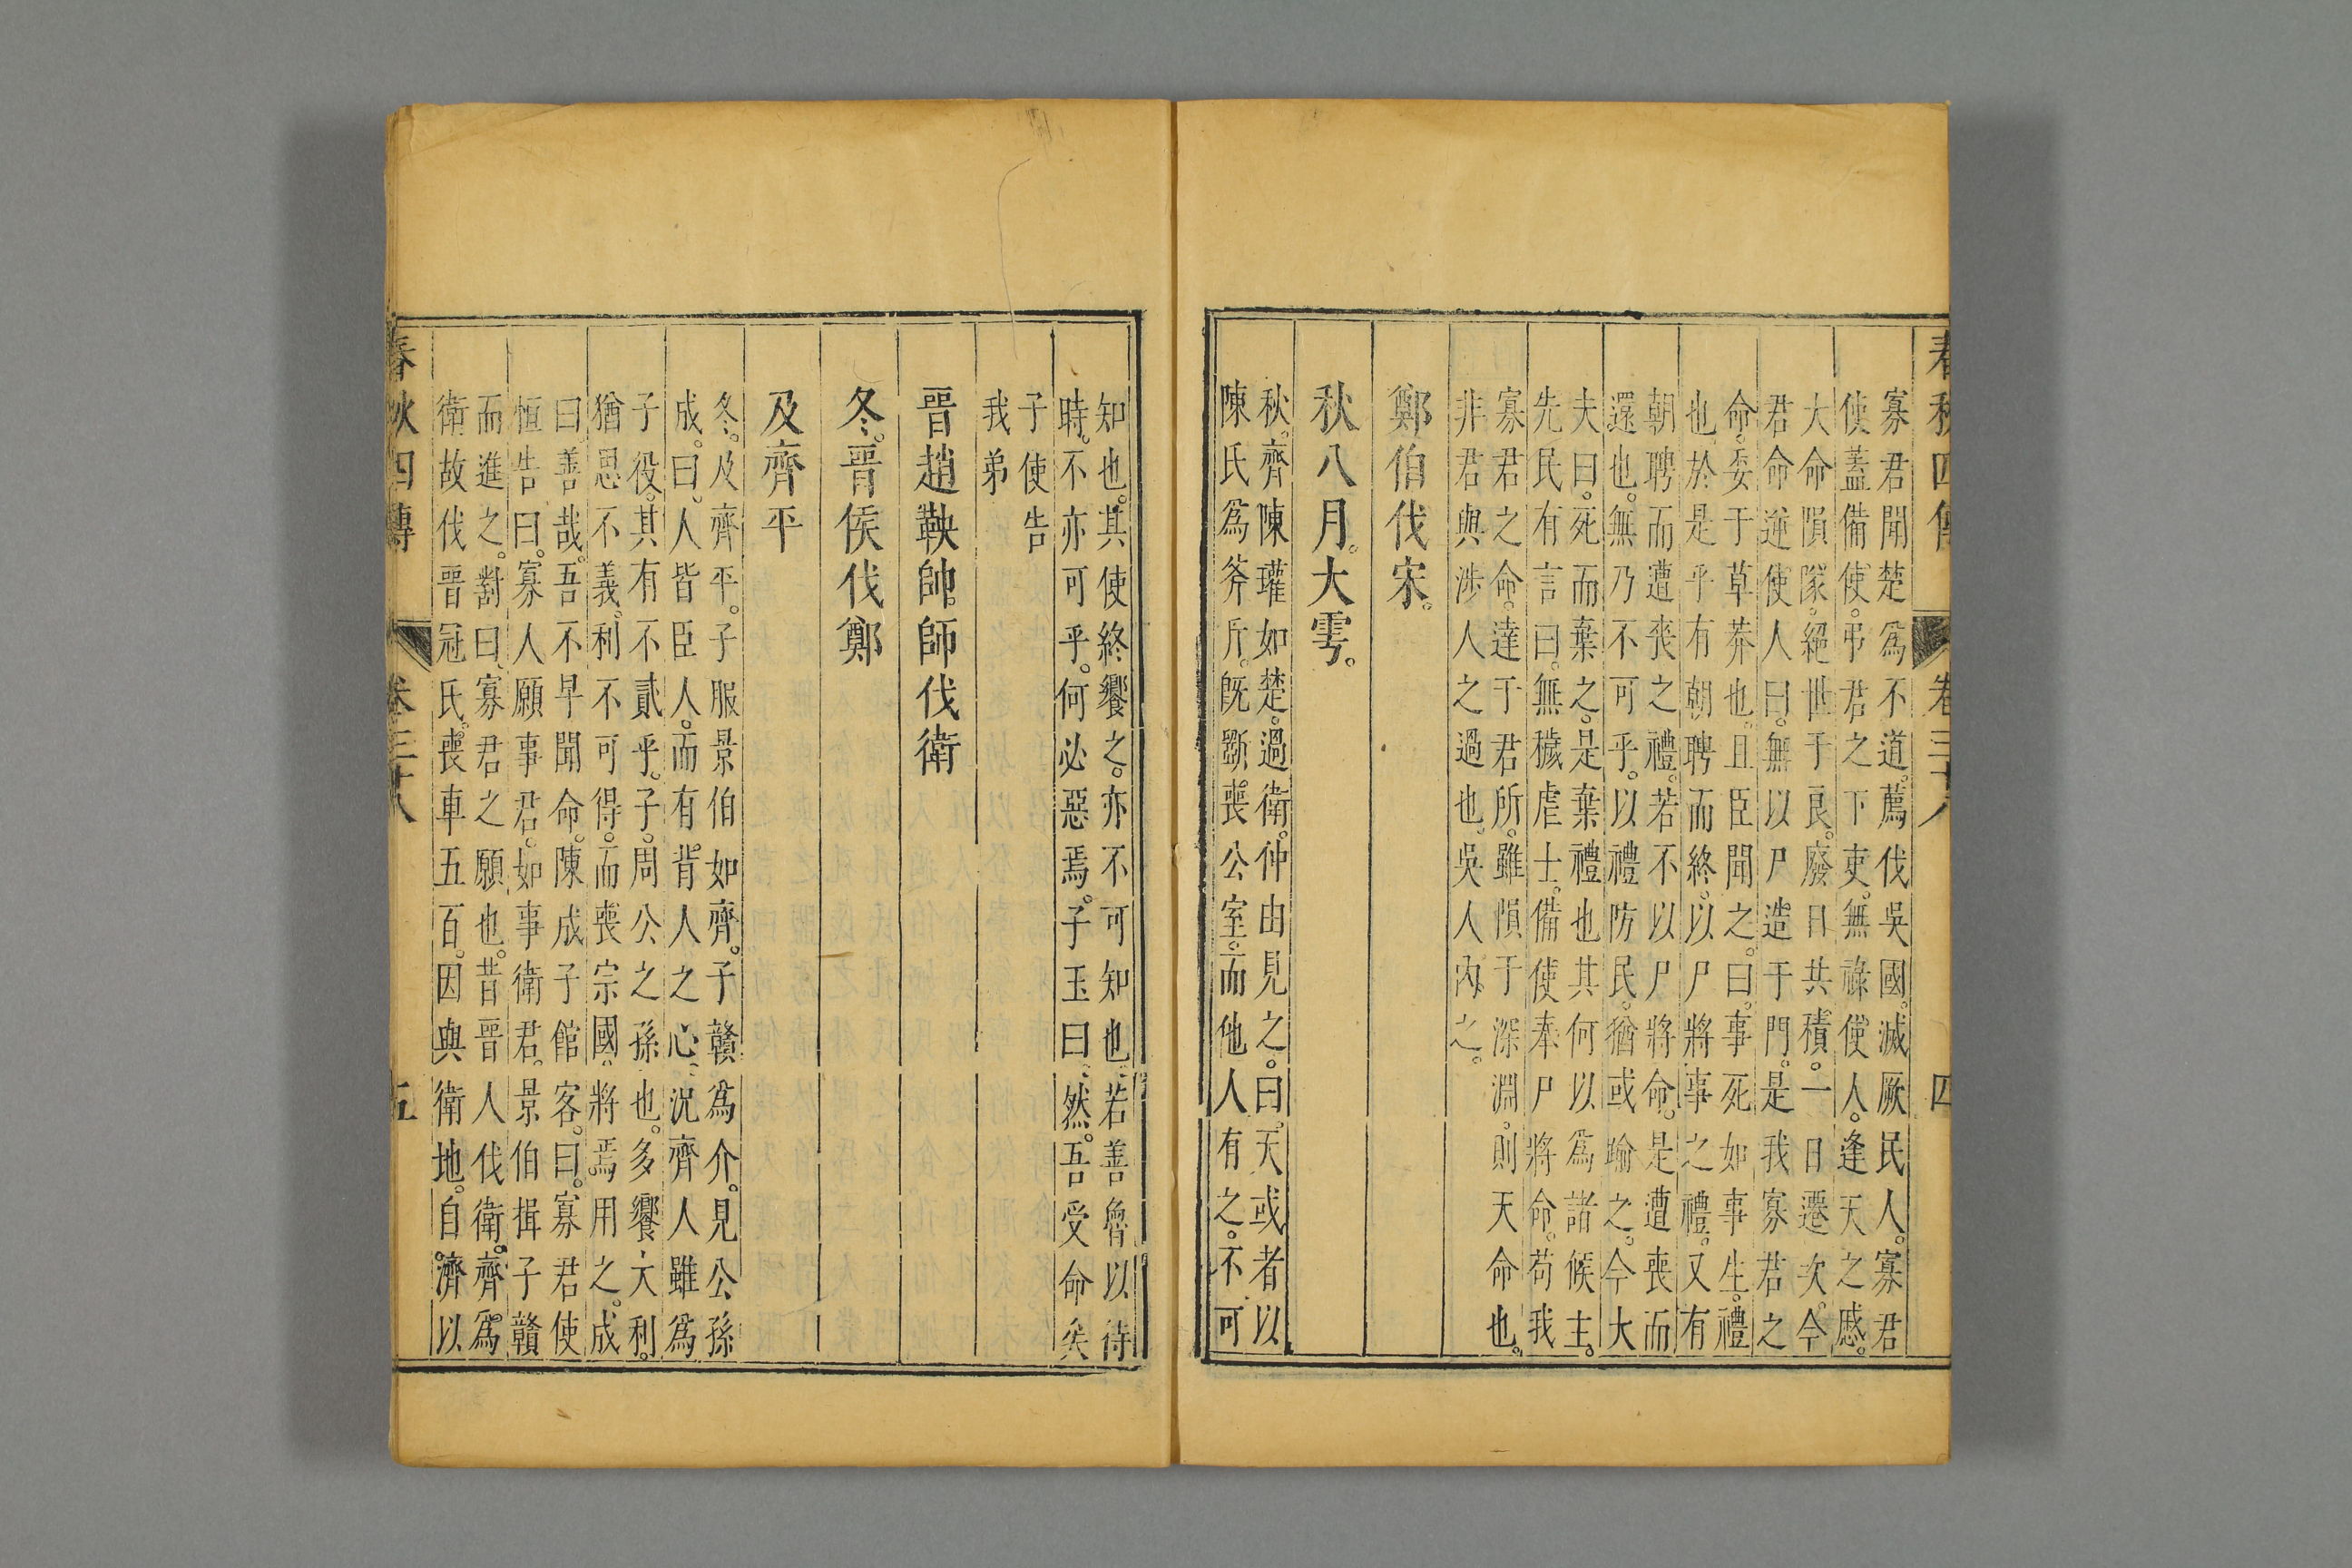 春秋四傳 卷三十八 四
寡君聞楚爲不道薦伐吳國滅厥民人寡君
使蓋備使弔君之下吏無祿使人逢天之慼
大命隕隊絕世于良廢日共積一日遷次今
君命逆使人曰無以尸造于門是我寡君之
命委于草莽也且臣聞之曰事死如事生禮
也於是乎有朝聘而終以尸將事之禮又有
朝聘而遭喪之禮若不以尸將命是遭喪而
還也無乃不可乎以禮防民猶或踰之今大
夫曰死而棄之是棄禮也其何以爲諸候主
先民有言曰無穢虐士備使奉尸將命苟我
寡君之命達于君所雖隕于深淵則天命也
非君與涉人之過也吳人內之
鄭伯伐宋
秋八月大雩
秋齊陳瓘如楚過衛仲由見之曰天或者以
陳氏爲斧斤旣斲喪公室而他人有之不可
知也其使終饗之亦不可知也若善魯以待
時不亦可乎何必惡焉子玉曰然吾受命矣
子使告
我弟
晉趙鞅帥師伐衛
冬晉侯伐鄭
及齊平
冬及齊平子服景伯如齊子贛爲介見公孫
成曰人皆臣人而有背人之心況齊人雖爲
子役其有不貳乎子周公之孫也多饗大利
猶思不義利不可得而喪宗國將焉用之成
曰善哉吾不早聞命陳成子館客曰寡君使
恒告曰寡人願事君如事衛君景伯揖子贛
而進之對曰寡君之願也昔晉人伐衛齊爲
衛故伐晉冠氏喪車五百因與衛地自濟以
春秋四傳 卷三十八 五